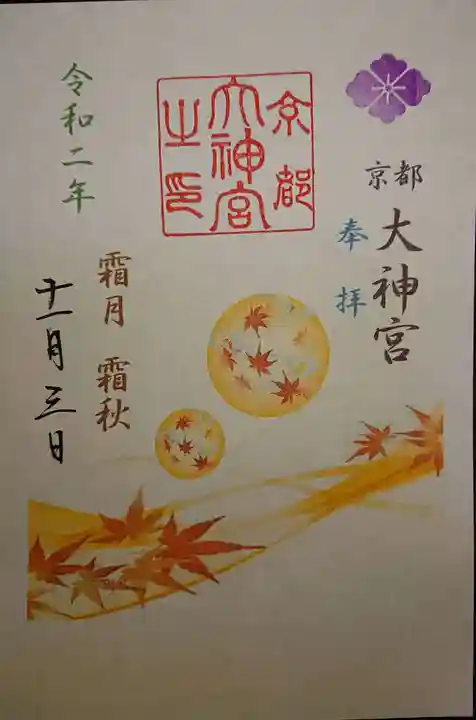 京都
大神宮
奉拝
京都
大神宮
之印
霜月 霜秋
令和二年
十一月三日